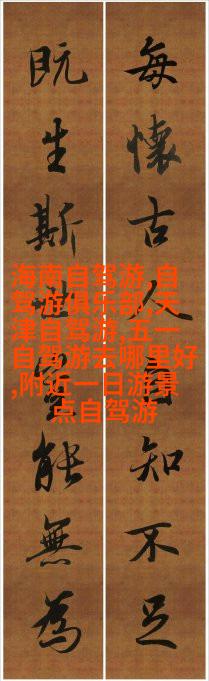 每懷古人知不足
既生斯世能無為
海南自驾游,自
驾游俱乐部,天
津自驾游,五一
自驾游去哪里好
,附近一日游景
点自驾游